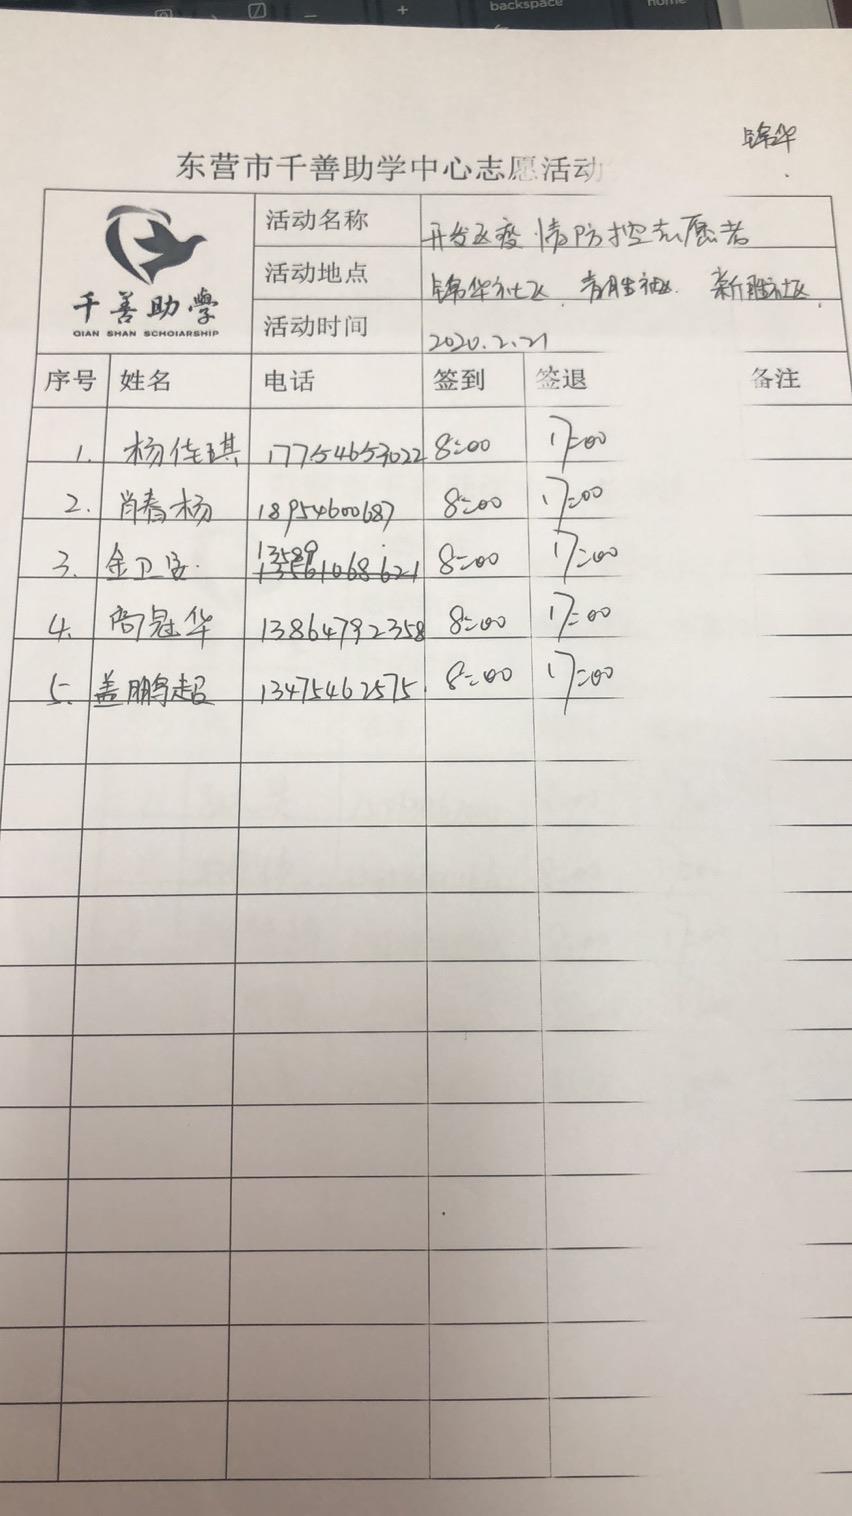 backspace
home
锦华
东营市千善助学中心志愿活动
千善助學
QIAN SHAN SCHOIARSHIP
活动名称 开发区疫情防控志愿者
活动地点 锦华社区 青胜社区 新胜社区
活动时间 2020.2.21
序号 姓名 电话 签到 签退 备注
1. 杨佳琪 17754653022 8:00 17:00
2. 肖春杨 18954600687 8:00 17:00
3. 金卫 8:00 17:00
4. 尚冠华 13864792358 8:00 17:00
5. 盖鹏超 13475462575 8:00 17:00